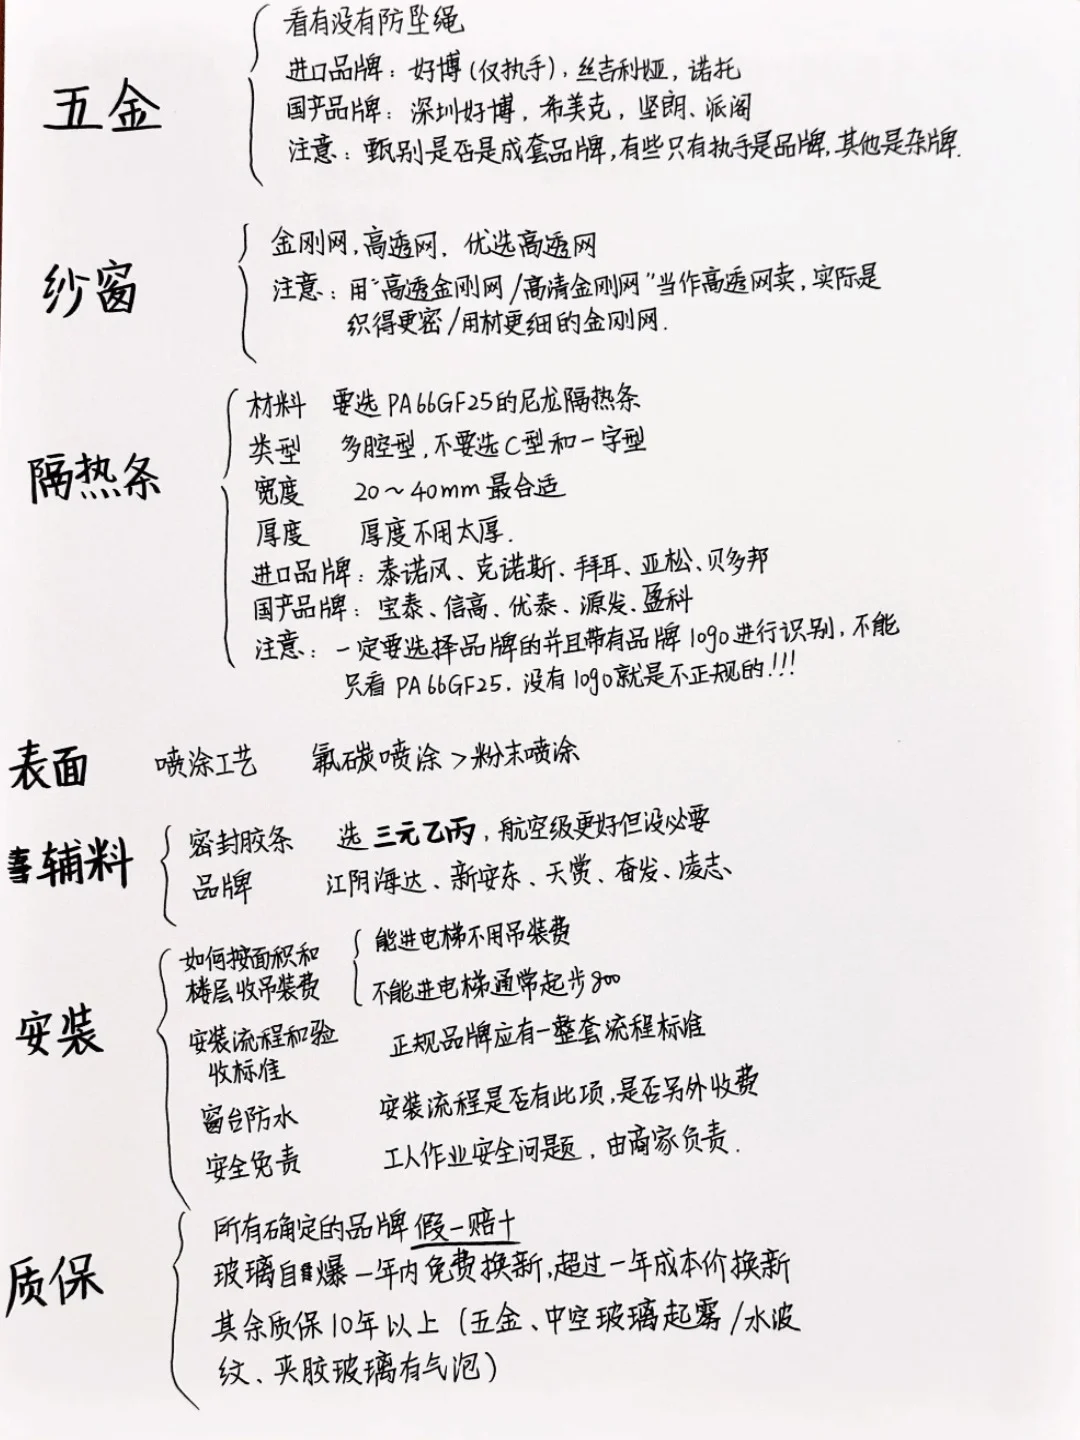 五金
看有没有防坠绳
进口品牌：好博(仅执手)，丝吉利娅，诺托
国产品牌：深圳好博，希美克，坚朗、派阁
注意：甄别是否是成套品牌，有些只有执手是品牌，其他是杂牌.
纱窗
金刚网，高透网，优选高透网
注意：用"高透金刚网/高清金刚网"当作高透网卖，实际是
织得更密/用材更细的金刚网.
隔热条
材料 要选PA66GF25的尼龙隔热条
类型 多腔型，不要选C型和一字型
宽度 20～40mm最合适
厚度 厚度不用太厚.
进口品牌：泰诺风、克诺斯、拜耳、亚松、贝多邦
国产品牌：宝泰、信高、优泰、源发、盈科
注意：一定要选择品牌的并且带有品牌logo进行识别，不能
只看PA66GF25.没有logo就是不正规的!!!
表面 喷涂工艺 氟碳喷涂>粉末喷涂
辅料
密封胶条 选三元乙丙，航空级更好但没必要
品牌 江阴海达、新安东、天赏、奋发、凌志、
安装
如何按面积和
楼层收吊装费
能进电梯不用吊装费
不能进电梯通常起步800
安装流程和验
收标准
正规品牌应有一整套流程标准
窗台防水 安装流程是否有此项，是否另外收费
安全免责 工人作业安全问题，由商家负责.
质保
所有确定的品牌假一赔十
玻璃自爆一年内免费换新，超过一年成本价换新
其余质保10年以上(五金、中空玻璃起雾/水波
纹、夹胶玻璃有气泡)